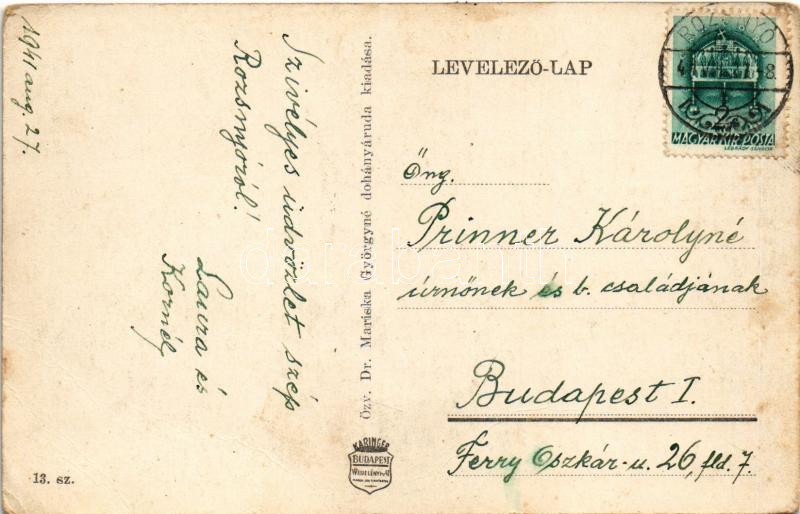 1941 aug. 27.
Szívélyes üdvözlet szép
Rozsnyóról!
Laura és
Kornél
Özv. Dr. Mariska Györgyné dohányáruda kiadása.
LEVELEZŐ-LAP
ROZSNYÓ
2
MAGYAR KIR. POSTA
LÉGRÁDY SÁNDOR
Őng.
Prinner Károlyné
úrnőnek és b. családjának
Budapest I.
Ferry Oszkár-u. 26, fld. 7.
KARINGER
BUDAPEST
13. sz.
darabanth